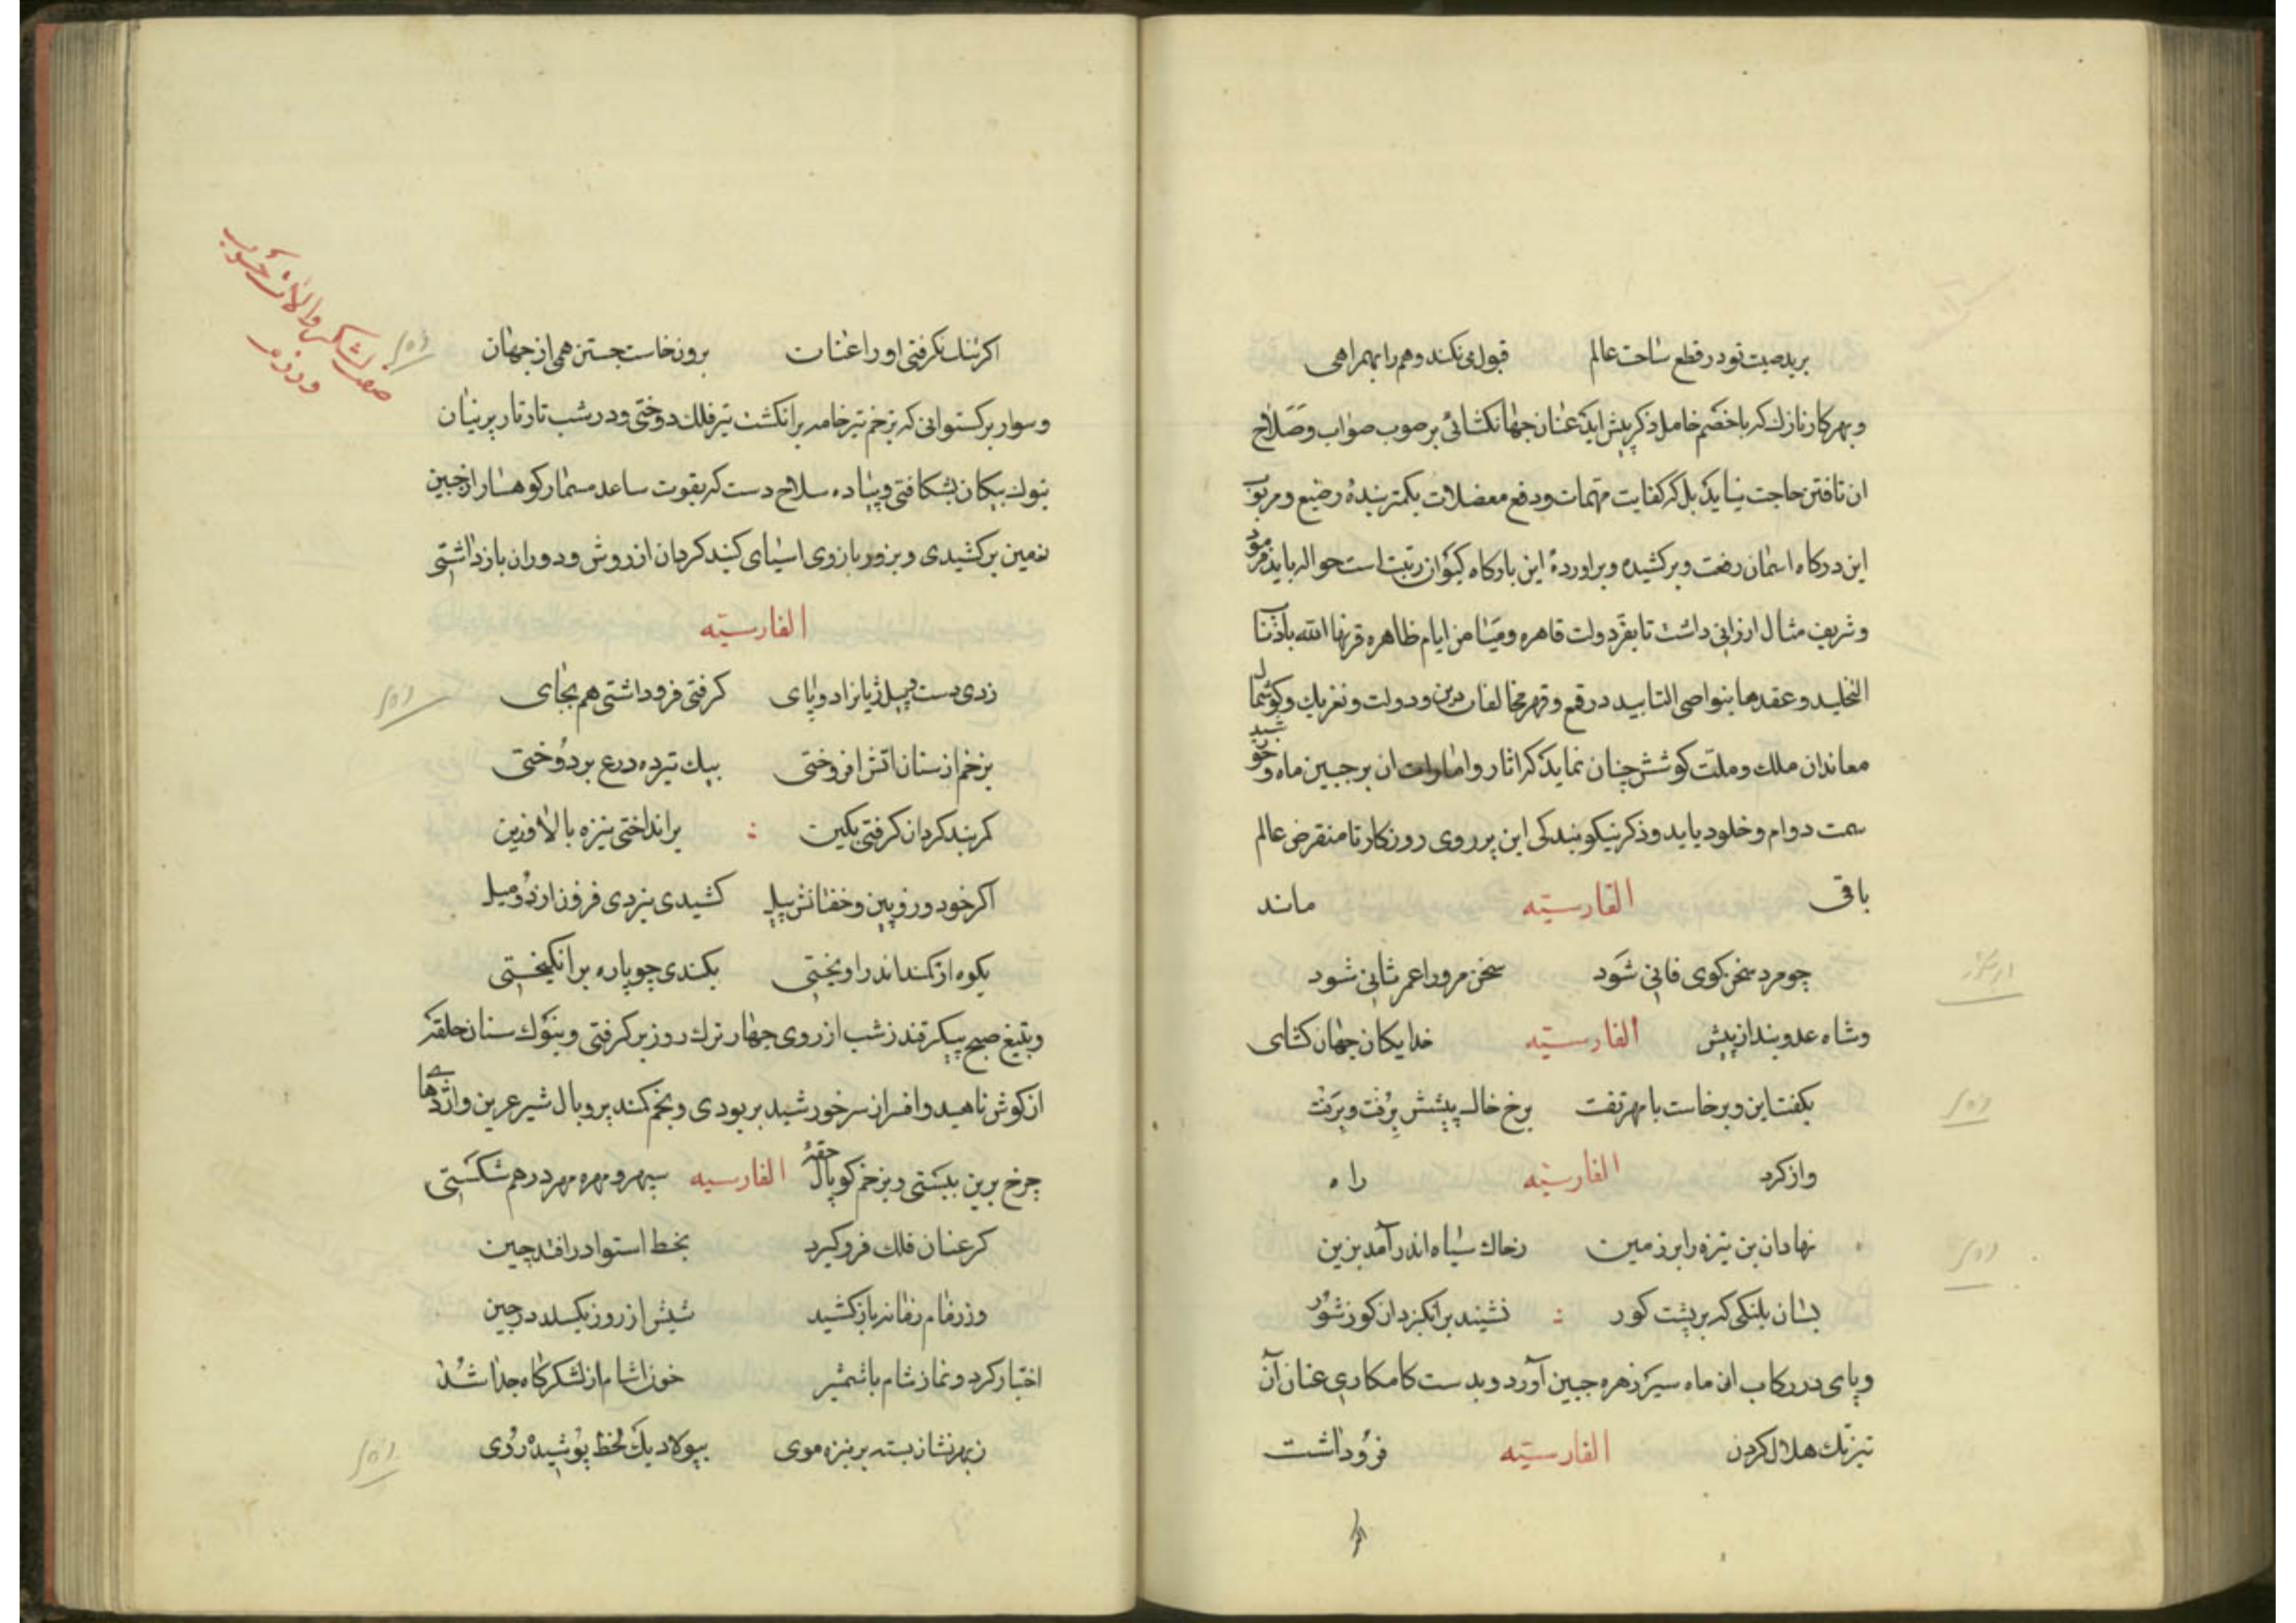 برید صیت تو در قطع ساحت عالم قبول می نکند وهم را بهمراهی
و بهر کار نازک که با خصم خامل ذکر پیش آید عنان جهانکشائی بر صوب صواب و صلاح
ان تافتن حاجت نیاید بل که کفایت مهمات و دفع معضلات بکمتر بندهٔ وضیع و مربوب
این درکاه اسمان رفعت و برکشیده و براوردهٔ این بارکاه کیوان رتبت است حواله باید فرمود
و شریف مثال ارزانی داشت تا بفر دولت قاهره و میامن ایام ظاهره قرنها الله باذناب
التخلید و عقدها بنواصی التابید در قمع و قهر مخالفان دین و دولت و تعریک و کوشمال
معاندان ملک و ملت کوشش چنان نماید که اثار و امارات ان بر جبین ماه و خورشید
سمت دوام و خلود یابد و ذکر نیکو بندکی این بر روی روزکار تا منقرض عالم
باقی الفارسیّه ماند
چو مرد سخن کوی فانی شود سخن مرورا عمر ثانی شود
و شاه عدوبند از پیش الفارسیّه خدایکان جهان کشای
بکفت این و برخاست با مهر تفت برخ خاک پیشش برفت و برفت
و از کرد الفارسیّه راه
نهاد ان بن نیزه را بر زمین ز خاک سیاه اندر آمد بزین
بسان پلنکی که بر پشت کور نشیند برانکیزد ان کور شور
و پای در رکاب ان ماه سیر زهره جبین آورد و بدست کامکاری عنان آن
تیزتک هلال کردن الفارسیّه فروداشت
اکر تنک نکرفتی او را عنان برون خاست جستن همی از جهان
و سوار برکستوانی که بزخم تیر خامه بر انکشت تیر فلک دوختی و در شب تار تار پرنیان
بنوک پیکان بشکافتی و پیاده سلاح دست که بقوت ساعد مسمار کوهسار از جبین
زمین برکشیدی و بزور بازوی اسیای کنبد کردان از روش و دوران بازداشتی
الفارسیّه
زدی دست پیل ژیان را دو پای کرفتی فروداشتی هم بجای
بزخم از سنان اتش افروختی بیک تیر ده درع بردوختی
کمربند کردان کرفتی بکین برانداختی نیزه بالا و زین
اکر خود و رویین و خفتانش پیل کشیدی بزدی فزون از دو میل
بکوه از کمند اندر اویختی بکندی چو پاره برانکیختی
و بتیغ صبح پیکر قندز شب از روی جهار ترک روز برکرفتی و بنوک سنان حلقه
از کوش ناهید و افسر از سر خورشید بربودی و بخم کمند پر و بال شیر عرین و اژدهای
چرخ برین ببستی و بزخم کوپال حقهٔ الفارسیه سپهر و مهره مهر درهم شکستی
کر عنان فلک فرو کیرد بخط استوا درافتد چین
ور زمام زمانه بازکشد شبش از روز بکسلد در حین
اختیار کرد و نماز شام با شمشیر خون اشام از لشکرکاه جدا شد
ز بهر نشان بسته بر نیزه موی بپولاد یک لخط پوشیده روی
صفت لشکر و الات حرب
و رزم